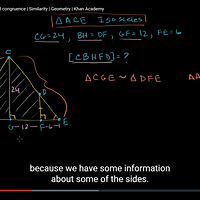 d congruence | Similarity | Geometry | Khan Academy
△ACE Isosceles
CG=24, BH=DF, GF=12, FE=6
[CBHFD]=?
△CGE ~ △DFE
C
24
D
G-12-F-6-E
because we have some information
about some of the sides.